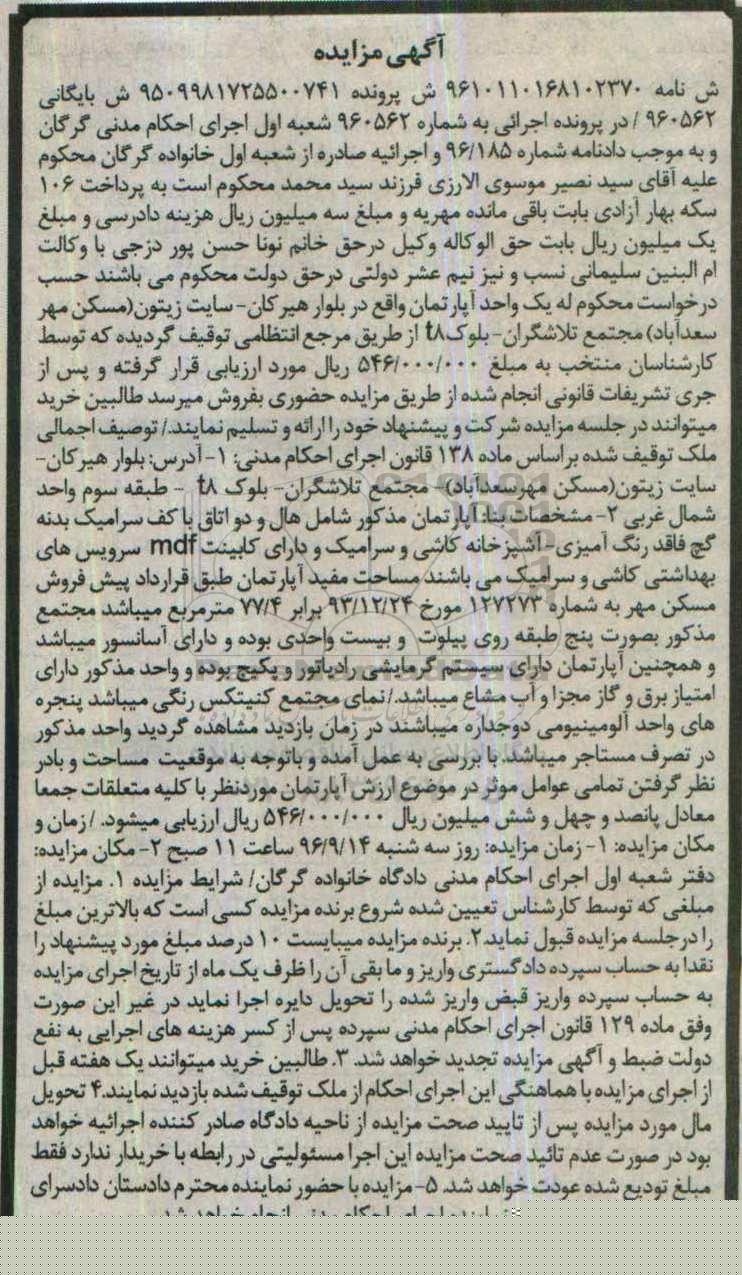 آگهی مزایده
ش نامه ۹۶۱۰۱۱۰۱۶۸۱۰۲۳۷۰ ش پرونده ۹۵۰۹۹۸۱۷۲۵۵۰۰۷۴۱ ش بایگانی
۹۶۰۵۶۲ / در پرونده اجرائی به شماره ۹۶۰۵۶۲ شعبه اول اجرای احکام مدنی گرگان
و به موجب دادنامه شماره ۹۶/۱۸۵ و اجرائیه صادره از شعبه اول خانواده گرگان محکوم
علیه آقای سید نصیر موسوی الارزی فرزند سید محمد محکوم است به پرداخت ۱۰۶
سکه بهار آزادی بابت باقی مانده مهریه و مبلغ سه میلیون ریال هزینه دادرسی و مبلغ
یک میلیون ریال بابت حق الوکاله وکیل درحق خانم نونا حسن پور دزجی با وکالت
ام البنین سلیمانی نسب و نیز نیم عشر دولتی درحق دولت محکوم می باشند حسب
درخواست محکوم له یک واحد آپارتمان واقع در بلوار هیرکان- سایت زیتون(مسکن مهر
سعدآباد) مجتمع تلاشگران- بلوک t۸ از طریق مرجع انتظامی توقیف گردیده که توسط
کارشناسان منتخب به مبلغ ۵۴۶/۰۰۰/۰۰۰ ریال مورد ارزیابی قرار گرفته و پس از
جری تشریفات قانونی انجام شده از طریق مزایده حضوری بفروش میرسد طالبین خرید
میتوانند در جلسه مزایده شرکت و پیشنهاد خود را ارائه و تسلیم نمایند./ توصیف اجمالی
ملک توقیف شده براساس ماده ۱۳۸ قانون اجرای احکام مدنی: ۱- آدرس: بلوار هیرکان-
سایت زیتون(مسکن مهرسعدآباد)- مجتمع تلاشگران- بلوک t۸ - طبقه سوم واحد
شمال غربی ۲- مشخصات بنا: آپارتمان مذکور شامل هال و دو اتاق با کف سرامیک بدنه
گچ فاقد رنگ آمیزی- آشپزخانه کاشی و سرامیک و دارای کابینت mdf سرویس های
بهداشتی کاشی و سرامیک می باشند مساحت مفید آپارتمان طبق قرارداد پیش فروش
مسکن مهر به شماره ۱۲۷۲۷۳ مورخ ۹۳/۱۲/۲۴ برابر ۷۷/۴ مترمربع میباشد مجتمع
مذکور بصورت پنج طبقه روی پیلوت و بیست واحدی بوده و دارای آسانسور میباشد
و همچنین آپارتمان دارای سیستم گرمایشی رادیاتور و پکیج بوده و واحد مذکور دارای
امتیاز برق و گاز مجزا و آب مشاع میباشد./نمای مجتمع کنیتکس رنگی میباشد پنجره
های واحد آلومینیومی دوجداره میباشند در زمان بازدید مشاهده گردید واحد مذکور
در تصرف مستاجر میباشد. با بررسی به عمل آمده و باتوجه به موقعیت مساحت و بادر
نظر گرفتن تمامی عوامل موثر در موضوع ارزش آپارتمان موردنظر با کلیه متعلقات جمعا
معادل پانصد و چهل و شش میلیون ریال ۵۴۶/۰۰۰/۰۰۰ ریال ارزیابی میشود. / زمان و
مکان مزایده: ۱- زمان مزایده: روز سه شنبه ۹۶/۹/۱۴ ساعت ۱۱ صبح ۲- مکان مزایده:
دفتر شعبه اول اجرای احکام مدنی دادگاه خانواده گرگان/ شرایط مزایده ۱. مزایده از
مبلغی که توسط کارشناس تعیین شده شروع برنده مزایده کسی است که بالاترین مبلغ
را درجلسه مزایده قبول نماید.۲. برنده مزایده میبایست ۱۰ درصد مبلغ مورد پیشنهاد را
نقدا به حساب سپرده دادگستری واریز و مابقی آن را ظرف یک ماه از تاریخ اجرای مزایده
به حساب سپرده واریز قبض واریز شده را تحویل دایره اجرا نماید در غیر این صورت
وفق ماده ۱۲۹ قانون اجرای احکام مدنی سپرده پس از کسر هزینه های اجرایی به نفع
دولت ضبط و آگهی مزایده تجدید خواهد شد. ۳. طالبین خرید میتوانند یک هفته قبل
از اجرای مزایده با هماهنگی این اجرای احکام از ملک توقیف شده بازدید نمایند.۴ تحویل
مال مورد مزایده پس از تایید صحت مزایده از ناحیه دادگاه صادر کننده اجرائیه خواهد
بود در صورت عدم تائید صحت مزایده این اجرا مسئولیتی در رابطه با خریدار ندارد فقط
مبلغ تودیع شده عودت خواهد شد. ۵- مزایده با حضور نماینده محترم دادستان دادسرای